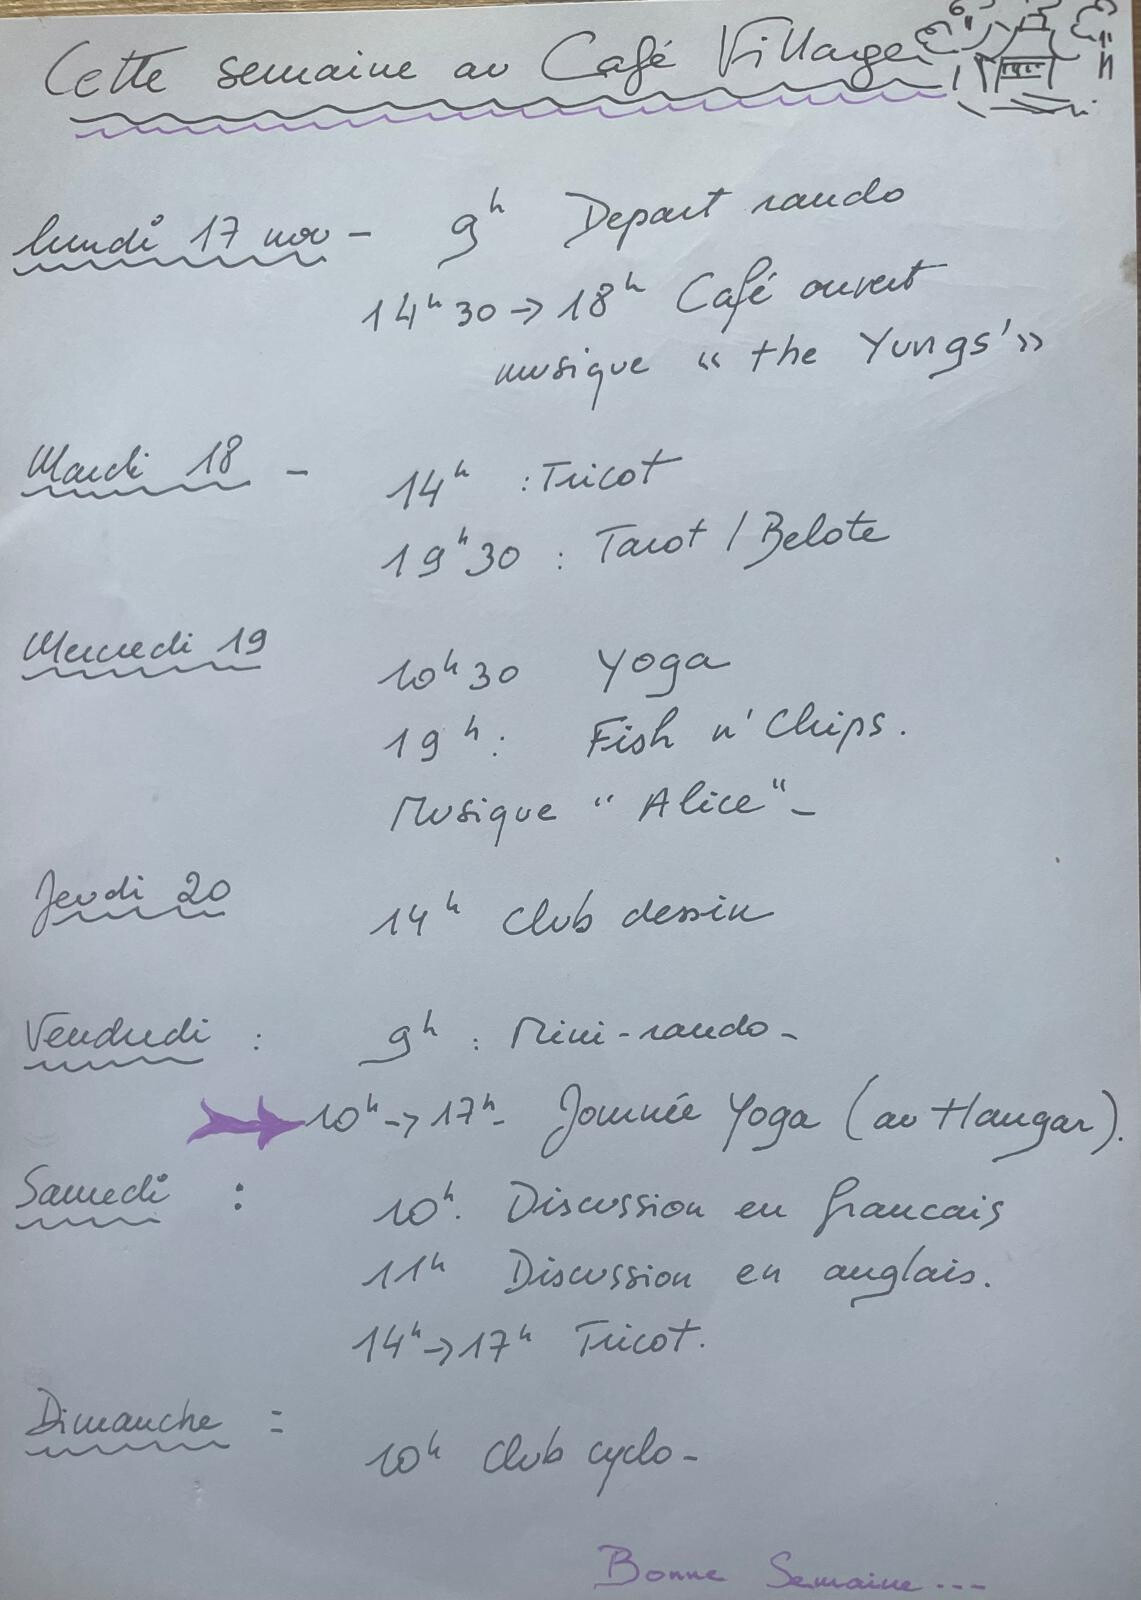 Cette semaine au Café Village
lundi 17 nov - 9h Depart rando
14h30 → 18h Café ouvert
musique « the Yungs' »
Mardi 18 - 14h : Tricot
19h30 : Tarot / Belote
Mercredi 19 10h30 Yoga
19h : Fish n' Chips.
Musique " Alice " -
Jeudi 20 14h Club dessin
Vendredi : 9h : Mini-rando -
10h → 17h - Journée Yoga (au Hangar).
Samedi : 10h. Discussion en francais
11h Discussion en anglais.
14h → 17h Tricot.
Dimanche : 10h Club cyclo -
Bonne Semaine ...